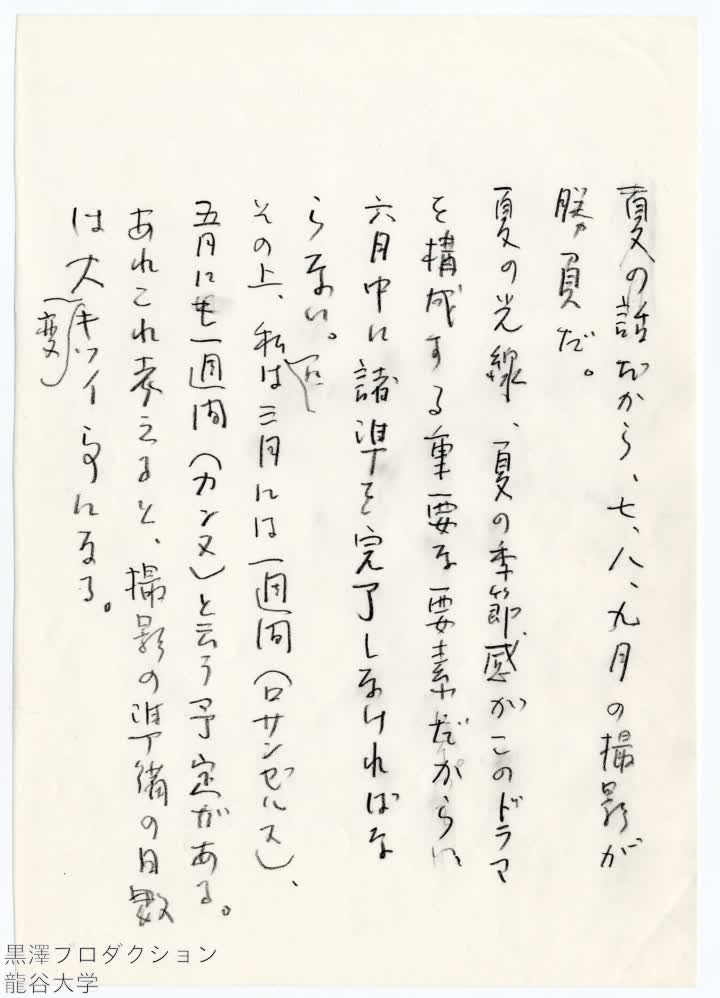 夏の話だから、七、八、九月の撮影が
勝負だ。
夏の光線、夏の季節感がこのドラマ
を構成する重要な要素だから
六月中に諸準を完了しなければな
らない。
その上、私は三月には一週間(ロサンゼルス)、
五月に一週間(カンヌ)と云う予定がある。
あれこれ考えると、撮影の準備の日数
は大変キツイ事になる。
黒澤プロダクション
龍谷大学